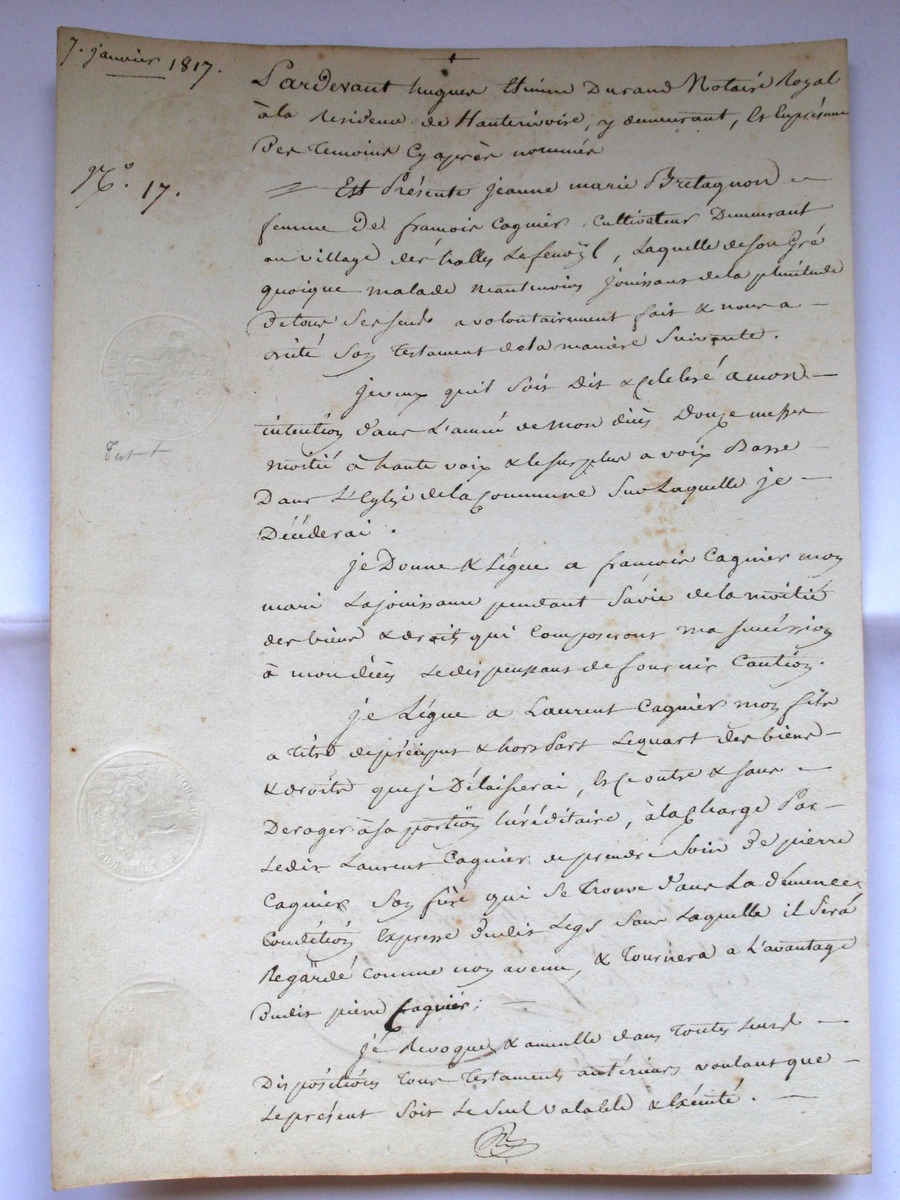 7. janvier 1817.
N.º 17.
Test +
Pardevant hugues Etienne Durand Notaire Royal
à la Residence de Hauterivoire, y demeurant, & En présence
Des Temoins Cy après nommés
Est Présente jeanne marie Bretagnon
femme De françois Cagnier Cultivateur Demeurant
au village des halles Lefenoÿl, Laquelle de son Gré
quoique malade Neantmoins jouissans de la plenitude
De tous Ses sens a volontairement fait & nous a
dicté Son Testament de la maniere Suivante.
je veux qu'il Soit Dit & Celebré a mon
intention dans L'année de mon décès Douze messes
moitié à haute voix & le surplus a voix Basse
Dans L'Eglize de la Commune Sur Laquelle je
Décéderai.
je Donne & Légue a françois Cagnier mon
mari La jouissance pendant Sa vie de la moitié
des biens & droits qui Composeront ma succession
à mon décès Le dispensans de fournir Caution.
je Légue a Laurent Cagnier mon fils
a titre de préciput & hors Part Le quart des biens
& droits que je Délaisserai, & Ce outre & sans
Deroger à sa portion héréditaire, à la Charge Par
Ledit Laurent Cagnier de prendre Soin De pierre
Cagnier Son frère qui Se Trouve dans La démence
Condition Expresse dudit Legs Sans Laquelle il Sera
Regardé Comme non avenu, & Tournera a L'avantage
dudit pierre Cagnier;
je Revoque & annulle dans Toutes Leurs
Dispositions Tous Testaments antérieurs voulant que
Le présent Soit Le Seul valable & Exécuté.